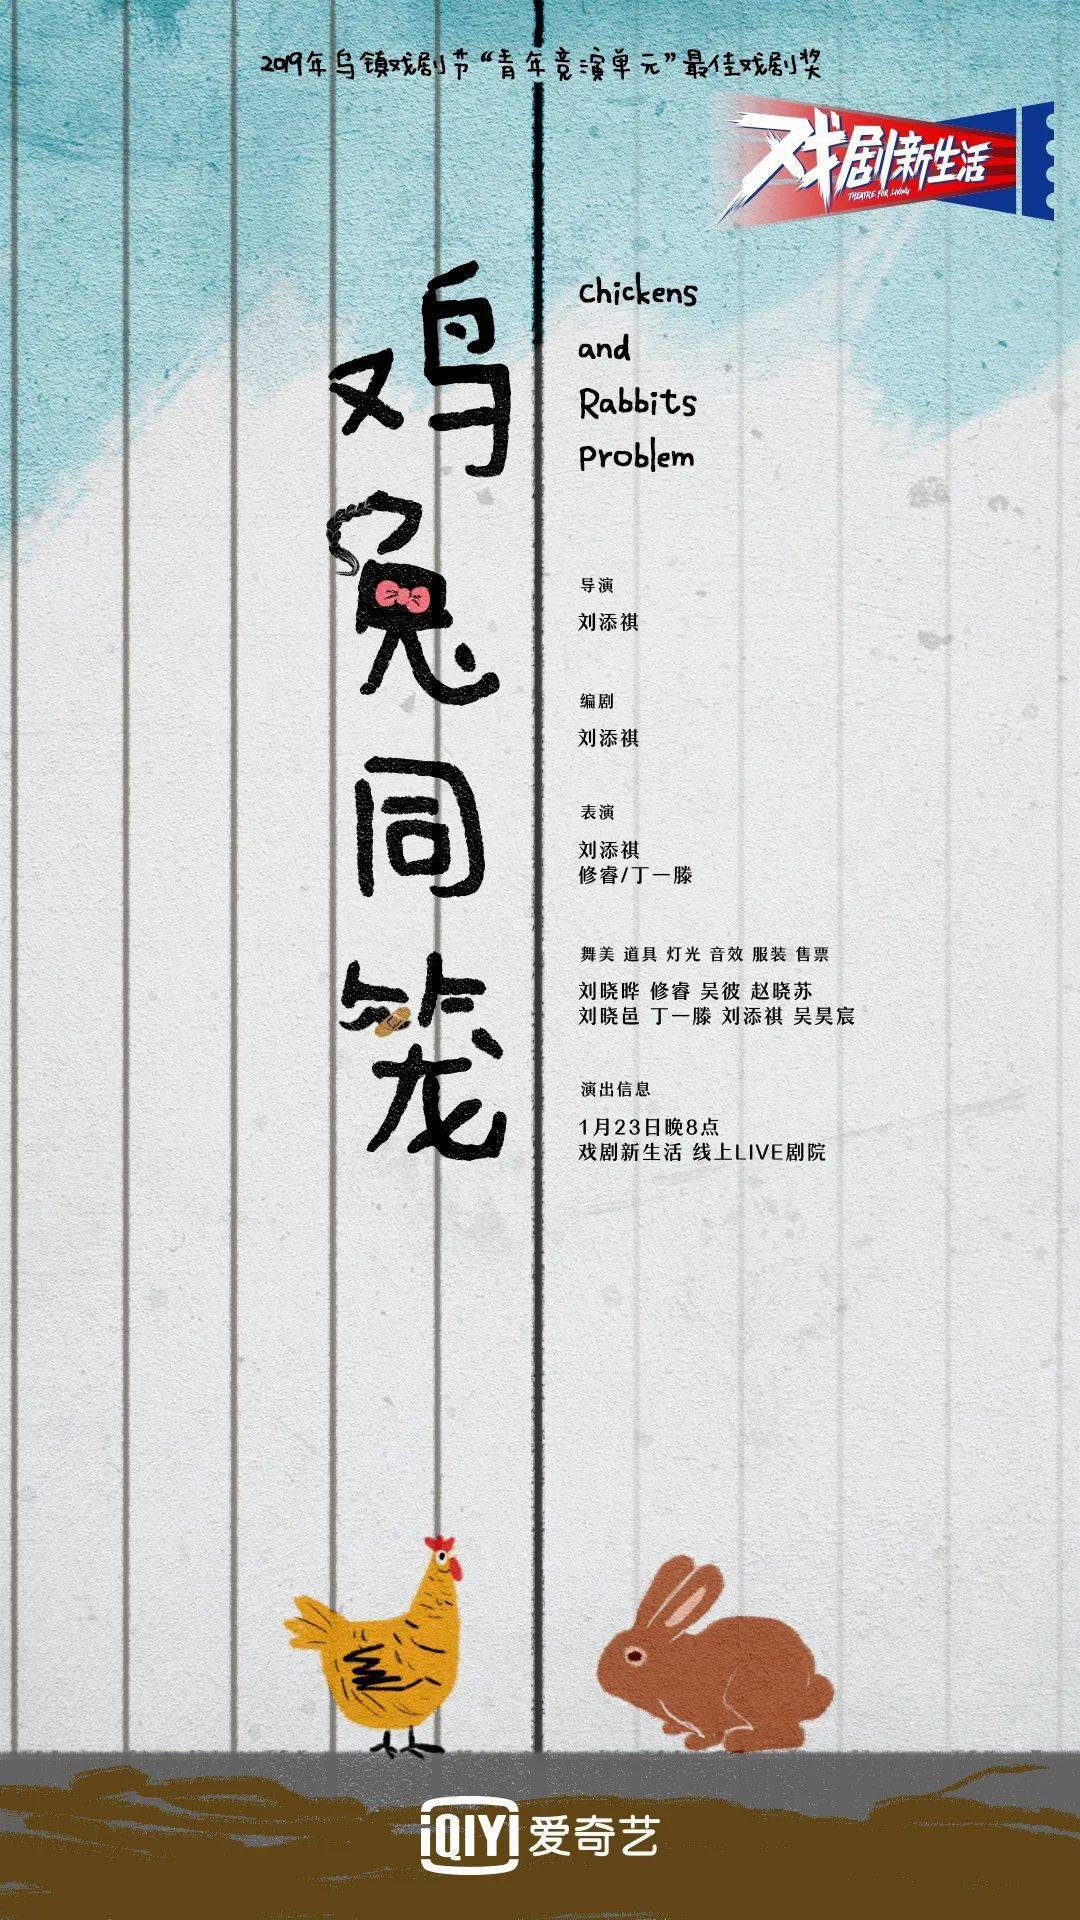 2019年乌镇戏剧节“青年竞演单元”最佳戏剧奖
戏剧新生活
THEATRE FOR LIVING
鸡兔同笼
Chickens
and
Rabbits
Problem
导演
刘添祺
编剧
刘添祺
表演
刘添祺
修睿/丁一滕
舞美 道具 灯光 音效 服装 售票
刘晓晔 修睿 吴彼 赵晓苏
刘晓邑 丁一滕 刘添祺 吴昊宸
演出信息
1月23日晚8点
戏剧新生活 线上LIVE剧院
iQIYI 爱奇艺